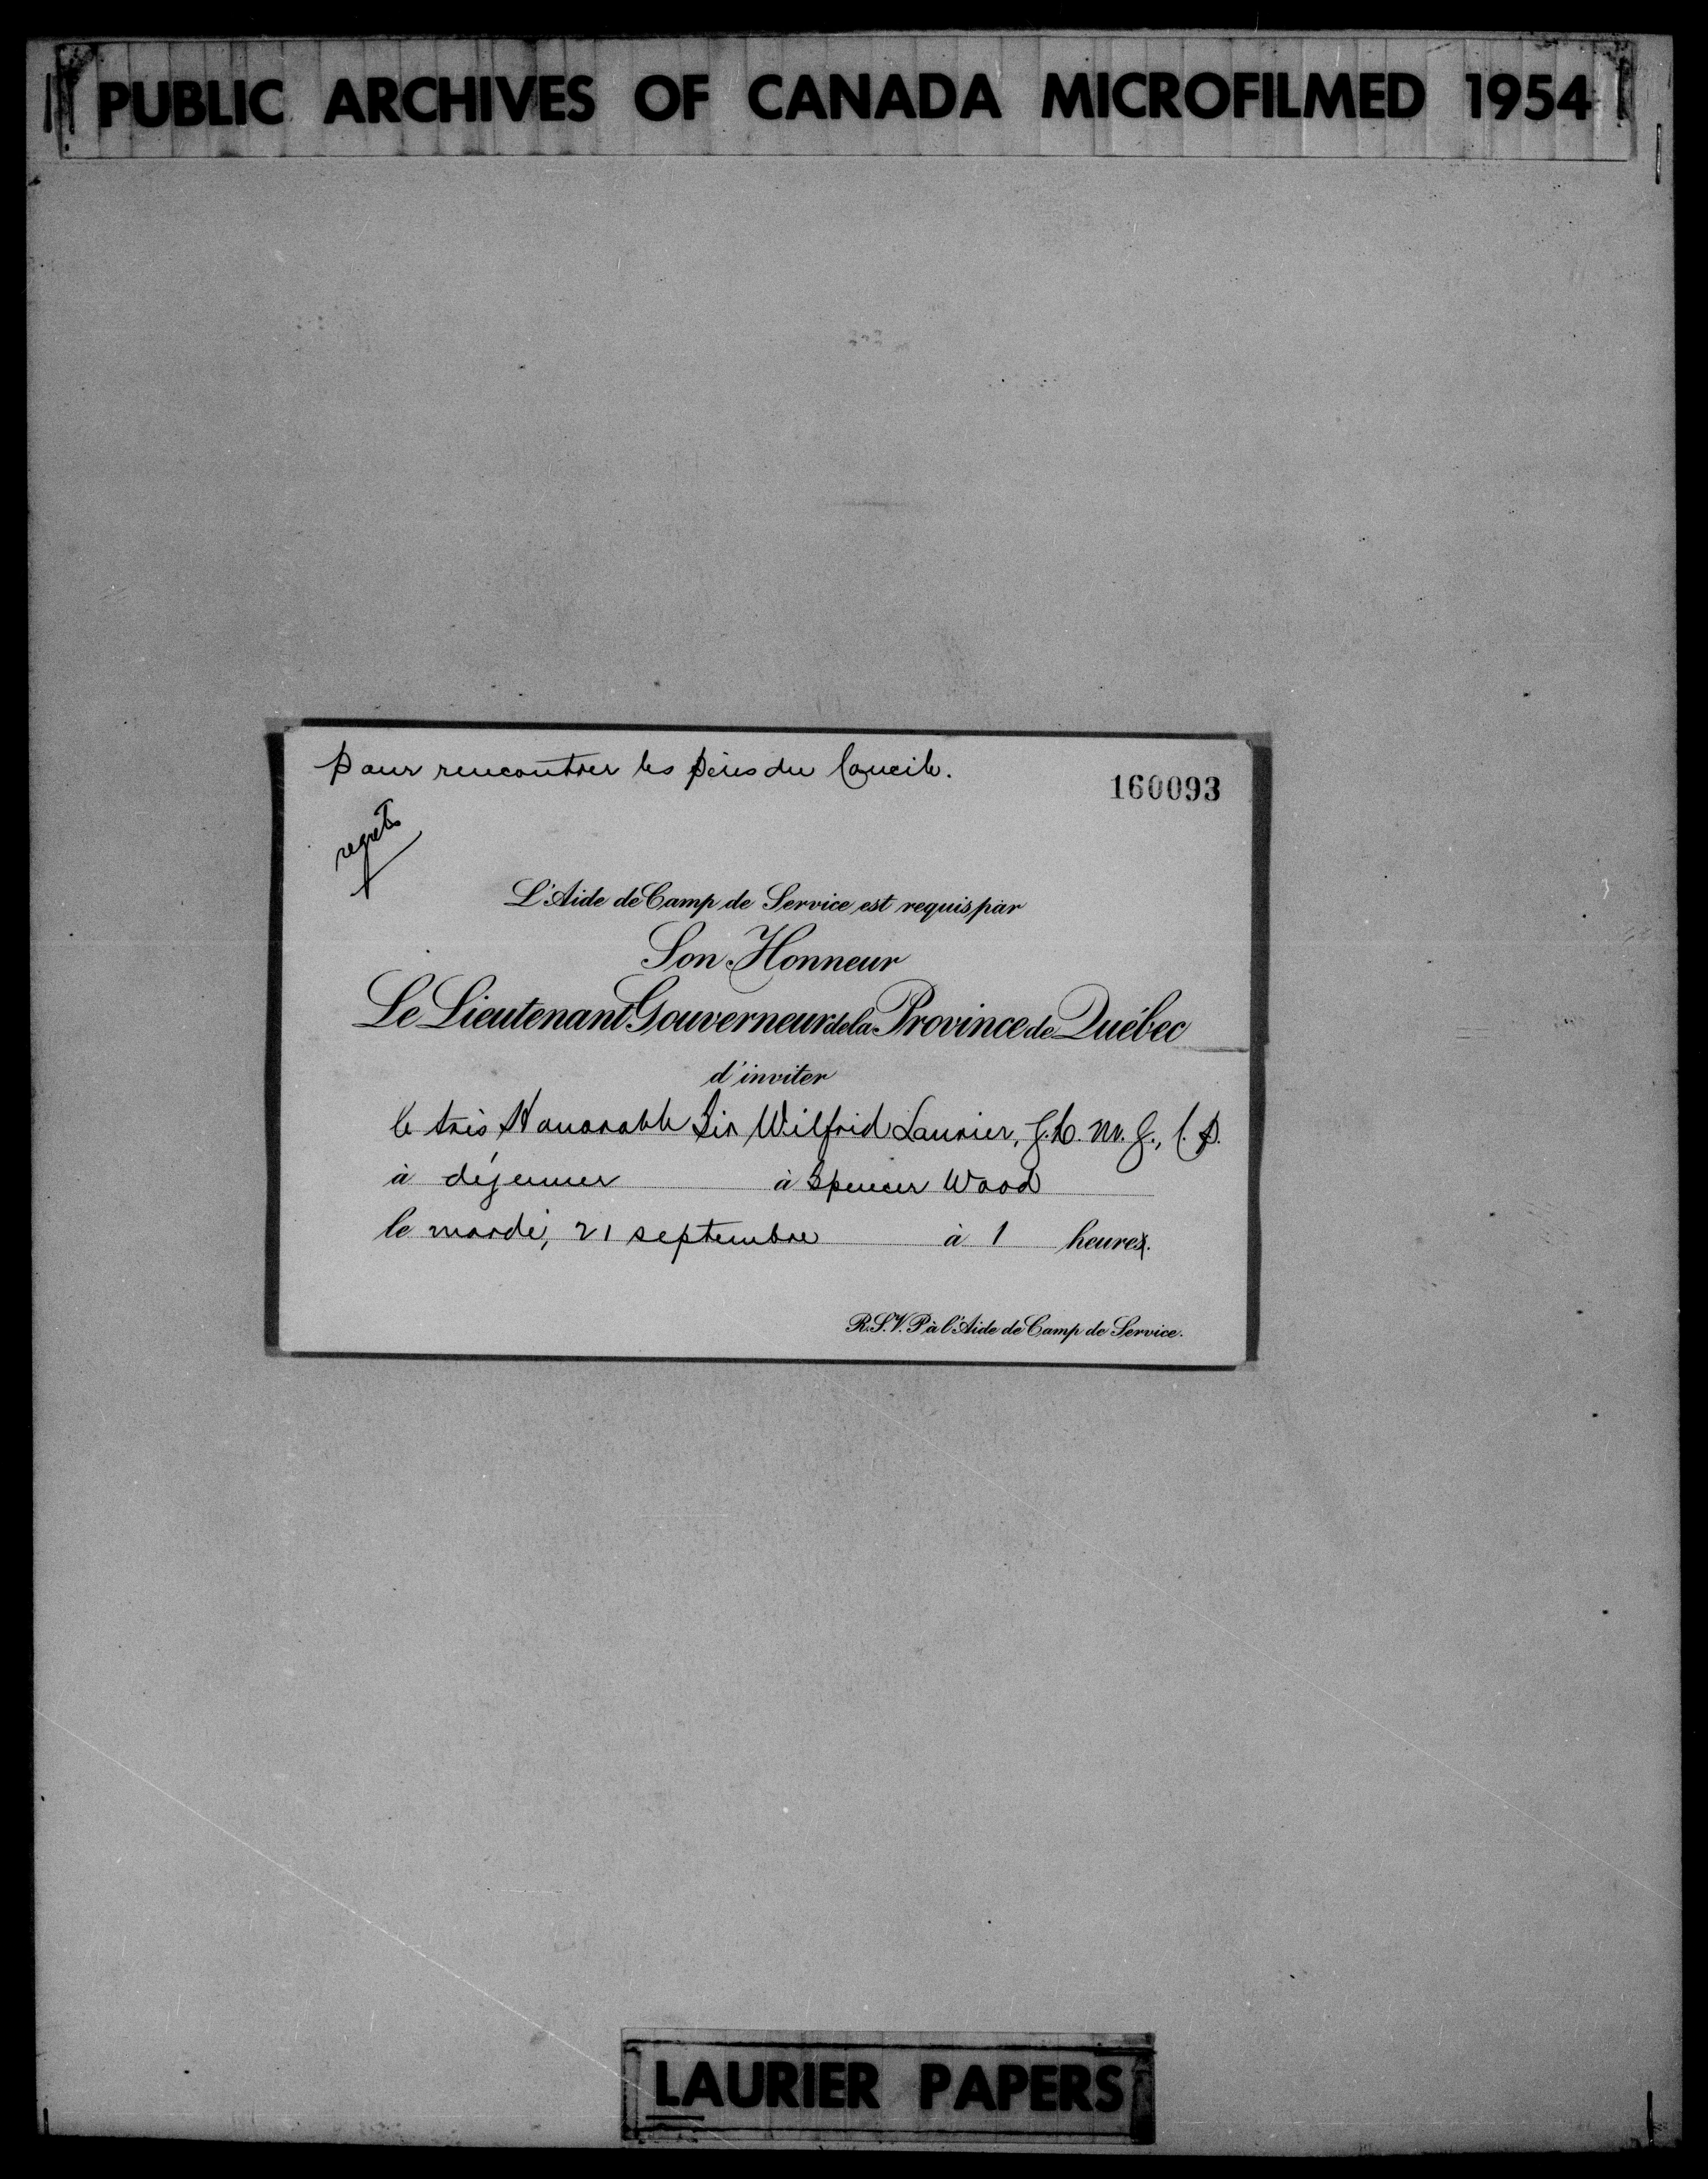 PUBLIC ARCHIVES OF CANADA MICROFILMED 1954
pour rencontrer les pères du Concile.
160093
regrets
L'Aide de Camp de Service est requis par
Son Honneur
Le Lieutenant Gouverneur de la Province de Québec
d'inviter
le très Honorable Sir Wilfrid Laurier, G.C.M.G., C.P.
à déjeuner à Spencer Wood
le mardi, 21 septembre à 1 heures.
R.S.V.P à l'Aide de Camp de Service.
LAURIER PAPERS